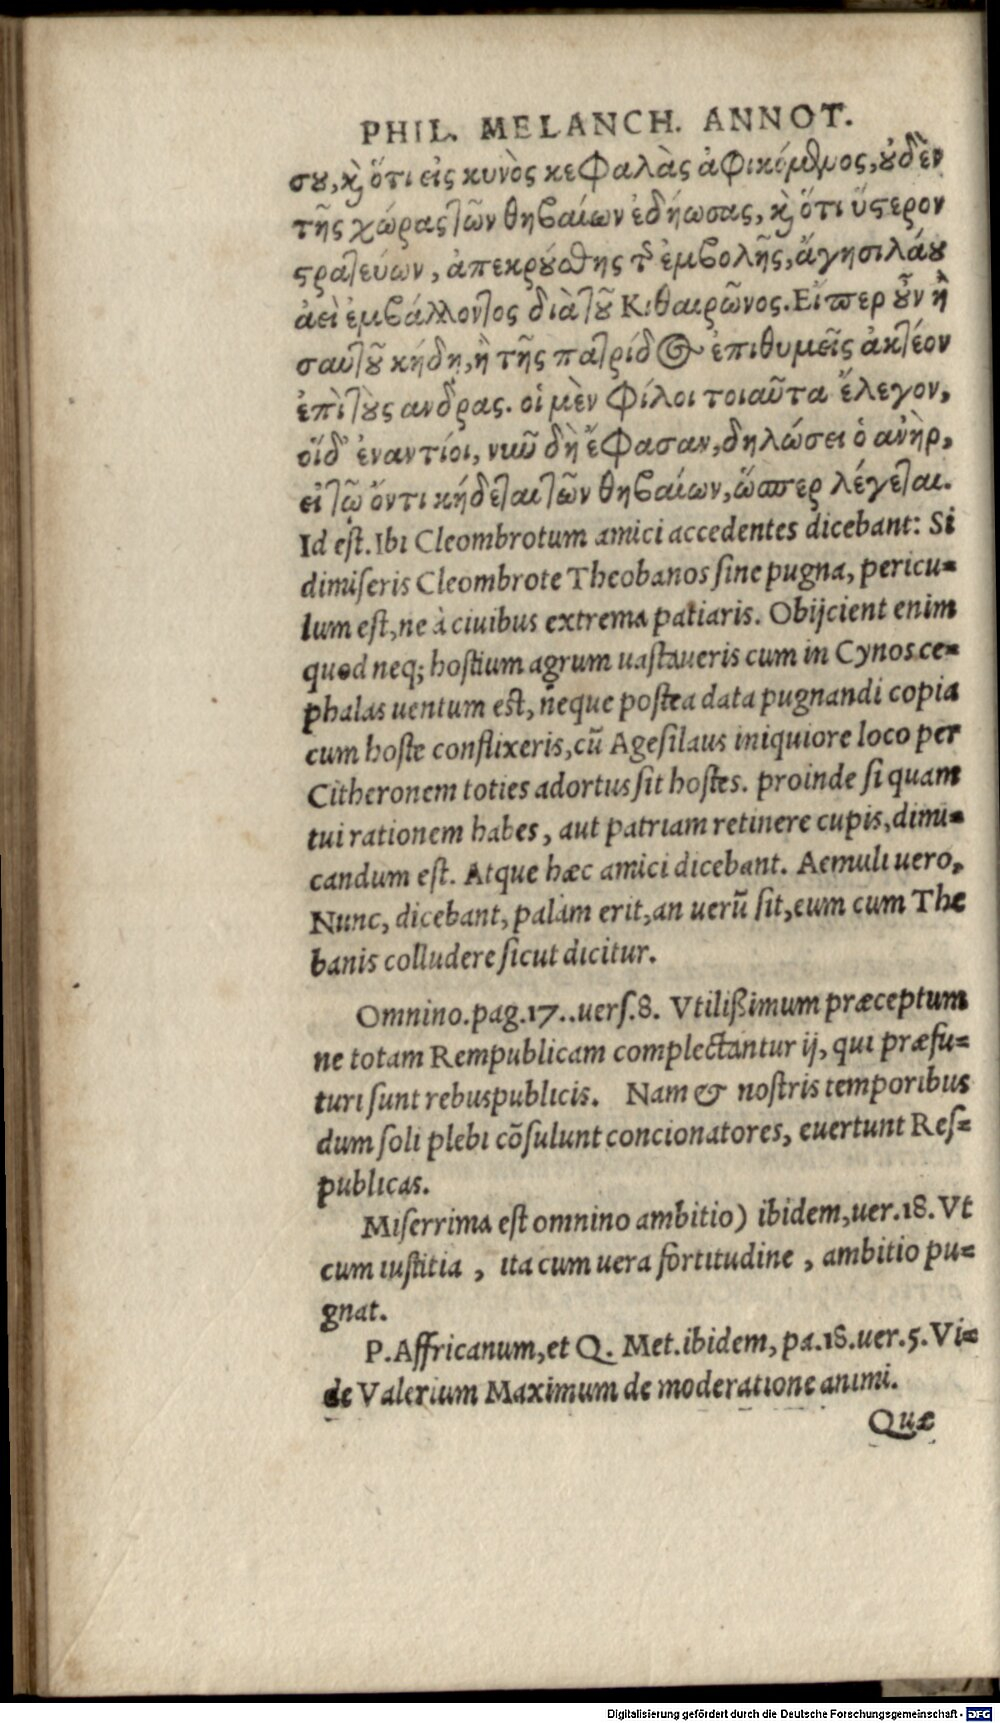 PHIL. MELANCH. ANNOT.
σου, καὶ ὅτι εἰς κυνὸς κεφαλὰς ἀφικόμενος, οὐδὲν
τῆς χώρας τῶν θηβαίων ἐδήωσας, καὶ ὅτι ὕστερον
στρατεύων, ἀπεκρούσθης τῆς ἐμβολῆς, ἀγησιλάου
ἀεὶ ἐμβάλλοντος διὰ τοῦ Κιθαιρῶνος. Εἴπερ οὖν ἢ
σαυτοῦ κήδη, ἢ τῆς πατρίδος ἐπιθυμεῖς ἀκτέον
ἐπὶ τοὺς ανδρας. οἱ μὲν φίλοι τοιαῦτα ἔλεγον,
οἵδ' ἐναντίοι, νῦν δὴ ἔφασαν, δηλώσει ὁ ανὴρ,
εἰ τῷ ὄντι κήδεται τῶν θηβαίων, ὥσπερ λέγεται.
Id est. Ibi Cleombrotum amici accedentes dicebant: Si
dimiseris Cleombrote Theobanos sine pugna, pericu=
lum est, ne à ciuibus extrema patiaris. Obijcient enim
quod neq; hostium agrum uastaueris cum in Cynos ce=
phalas uentum est, neque postea data pugnandi copia
cum hoste conflixeris, cū Agesilaus iniquiore loco per
Citheronem toties adortus sit hostes. proinde si quam
tui rationem habes, aut patriam retinere cupis, dimi=
candum est. Atque hæc amici dicebant. Aemuli uero,
Nunc, dicebant, palàm erit, an uerū sit, eum cum The
banis colludere sicut dicitur.
Omnino. pag. 17.. uers. 8. Vtilißimum præceptum
ne totam Rempublicam complectantur ij, qui præfu=
turi sunt rebuspublicis. Nam & nostris temporibus
dum soli plebi cōsulunt concionatores, euertunt Res=
publicas.
Miserrima est omnino ambitio) ibidem, uer. 18. Vt
cum iustitia, ita cum uera fortitudine, ambitio pu=
gnat.
P. Affricanum, et Q. Met. ibidem, pa. 18. uer. 5. Vi=
de Valerium Maximum de moderatione animi.
Quæ
Digitalisierung gefördert durch die Deutsche Forschungsgemeinschaft - DFG